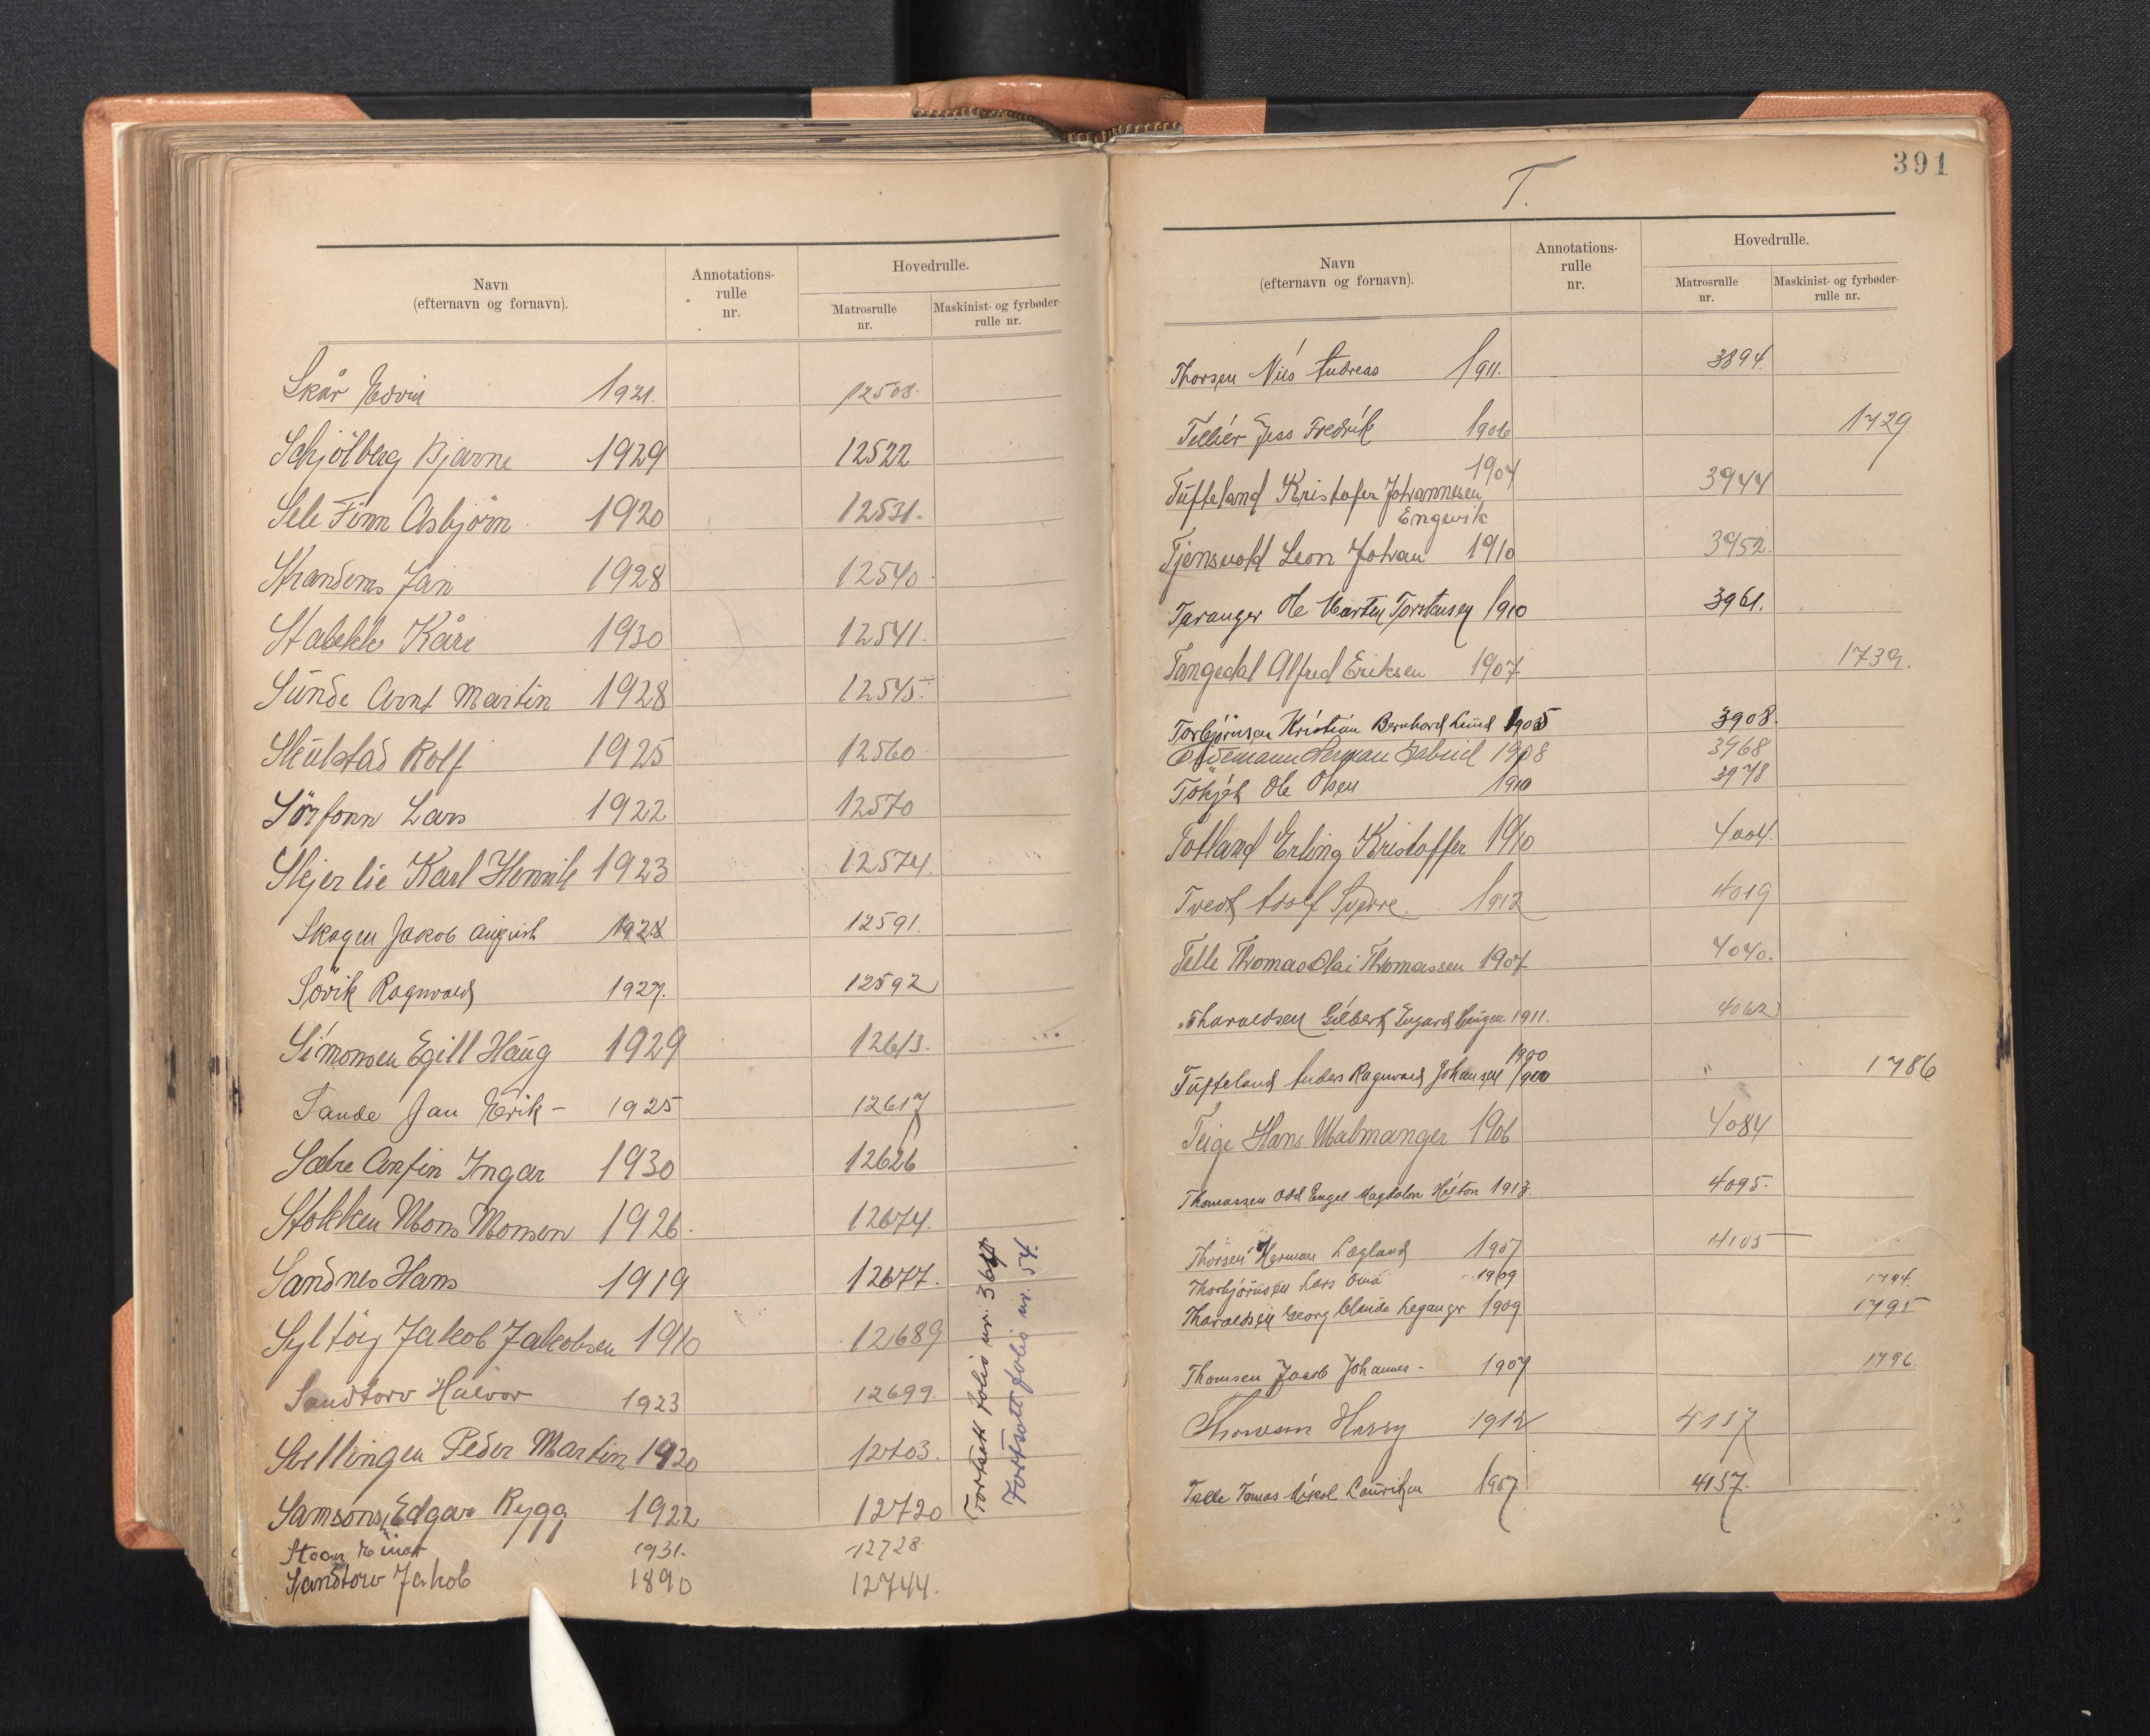 Navn
(efternavn og fornavn).
Annotations-
rulle
nr.
Hovedrulle.
Matrosrulle
nr.
Maskinist- og fyrbøder-
rulle nr.
Skår Edvin 1921. 12508.
Schjölberg Bjarne 1929 12522
Sele Finn Asbjörn 1920 12531.
Strandenes Jan 1928 12540.
Stabekk Kåre 1930 12541.
Sunde Arnt Martin 1928 12545.
Skulstad Rolf 1925 12560
Sörfonn Lars 1922 12570
Skjerlie Karl Henrik 1923 12574.
Skagen Jakob August 1928 12591.
Sövik Ragnvald 1927. 12592
Simonsen Egill Haug 1929 12613.
Sande Jan Erik - 1925 12617
Sætre Arnfin Ingar 1930 12626
Stokken Mons Monsen 1926. 12674.
Sandnes Hans 1919 12677.
Syltöy Jakob Jakobsen 1910 12689
Sandtorv Halvor 1923 12699.
Stellingen Peder Martin 1920 12703.
Samsons, Edgar Rygg 1922 12720
Einar 1931. 12728
Sandtorv Jakob 1890 12744.
Fortsatt folio nr. 364
Fortsatt folio nr. 54.
391
T.
Navn
(efternavn og fornavn).
Annotations-
rulle
nr.
Hovedrulle.
Matrosrulle
nr.
Maskinist- og fyrbøder-
rulle nr.
Thorsen Nils Andreas 1911. 3894.
Tellier Jess Fredrik 1906 1729
1904
Tufteland Kristofer Johannesen 3944
Engevik
Tjensvold Leon Johan 1910 3952.
Taranger Ole Marten Torstensen 1910 3961.
Tangedal Alfred Eriksen 1907 1739.
Torbjörnsen Kristian Bernhard Lund 1905 3908.
Herman Gabriel 1908 3968
Ole Olsen 1910 3978
Totland Erling Kristoffer 1910 4004.
Tvedt Adolf Sverre. 1912 4019
Telle Thomas Olai Thomassen 1907 4040.
Tharaldsen Gilbert Ingard Haugen 1911. 4062
1900
Tufteland Anders Ragnvald Johansen 1900 " 1786
Teige Hans Malmanger 1906 4084
Thomassen Odd Engel Magdalon Hilton 1913. 4095.
Thorsen Herman Lægland 1907 4105
Thorbjörnsen Lars Oma 1909 1794.
Tharaldsen Georg Claude Leganger 1909 1795
Thomsen Jacob Johannes - 1907 1796.
Harry 1912 4137
Telle Tomas Mikal Lauritzen 1907 4157.